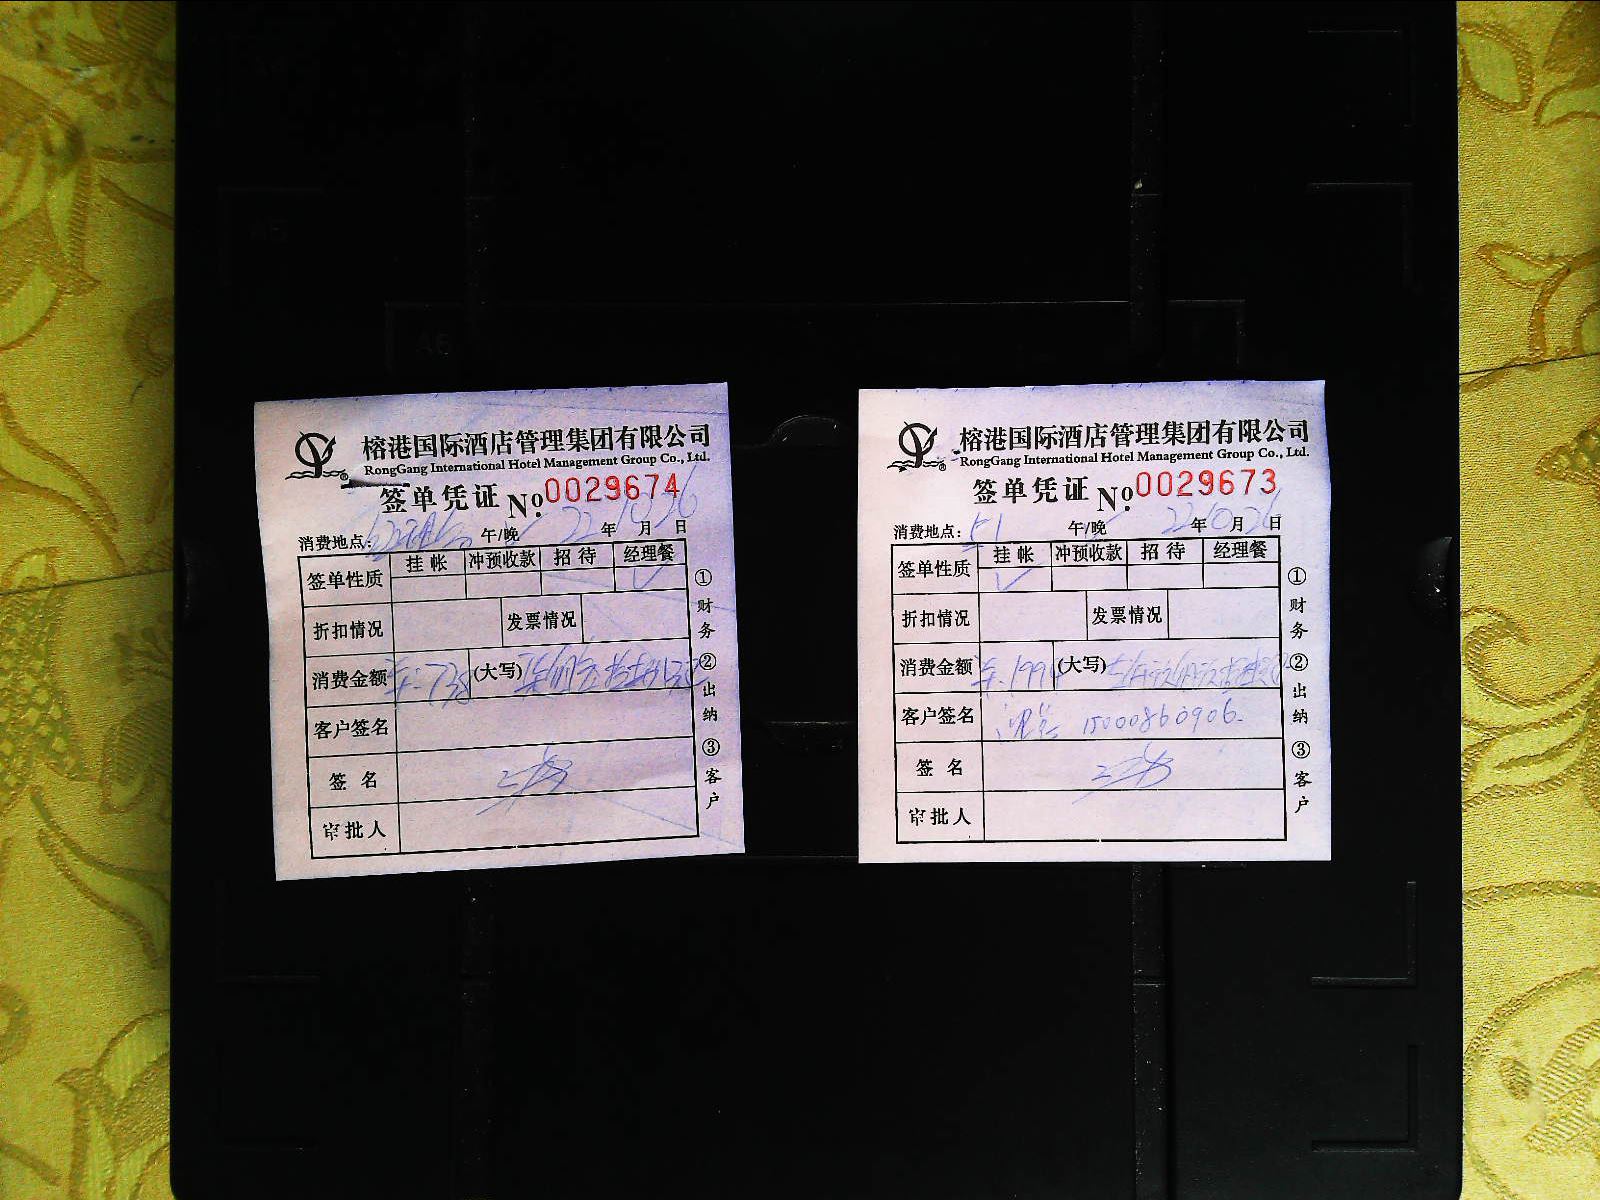 榕港国际酒店管理集团有限公司
RongGang International Hotel Management Group Co., Ltd.
签单凭证 No. 0029674
消费地点: 午/晚 22 年 10 月 26 日
签单性质 挂帐 冲预收款 招待 经理餐
✓
折扣情况 发票情况
消费金额 (大写)
客户签名
签名
审批人
①财务 ②出纳 ③客户
榕港国际酒店管理集团有限公司
RongGang International Hotel Management Group Co., Ltd.
签单凭证 No. 0029673
消费地点: 午/晚 22 年 10 月 26 日
签单性质 挂帐 冲预收款 招待 经理餐
✓
折扣情况 发票情况
消费金额 (大写)
客户签名 15000860906.
签名
审批人
①财务 ②出纳 ③客户